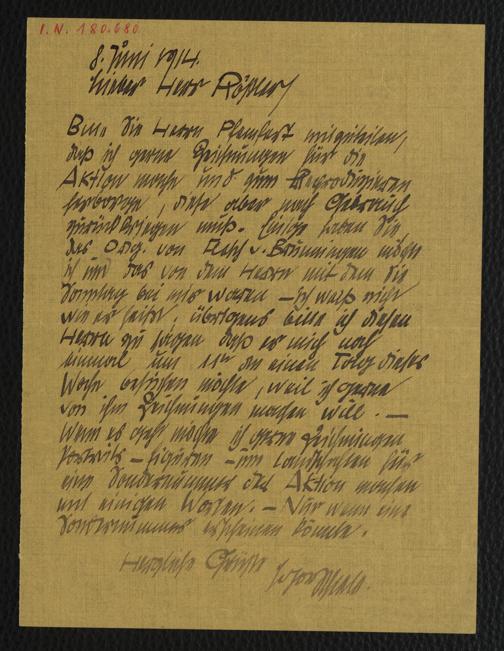 I.N. 180.680
8. Juni 1914.
Lieber Herr Rößler!
Bitte Sie Herrn Pfemfert mitzuteilen,
daß ich gerne Zeichnungen für die
Aktion mache und zum Reproduzieren
herborge, diese aber nach Gebrauch
zurückkriegen muß. – haben Sie
das Org. von v. Brünningen
ich und das von dem Herrn mit dem Sie
Sonntag bei mir waren – ich weiß nicht
wie er heißt. übrigens bitte ich diesen
Herrn zu sagen daß er mich noch
einmal um an einen Tag dieser
Woche besuchen möchte, weil ich gerne
von ihm Zeichnungen machen will. –
Wenn es geht möchte ich gerne Zeichnungen
Portraits – Figuren – und Landschaften für
eine Sondernummer der Aktion machen
mit einigen Worten. – Nur wenn eine
Sondernummer erscheinen könnte.
Herzliche Grüße